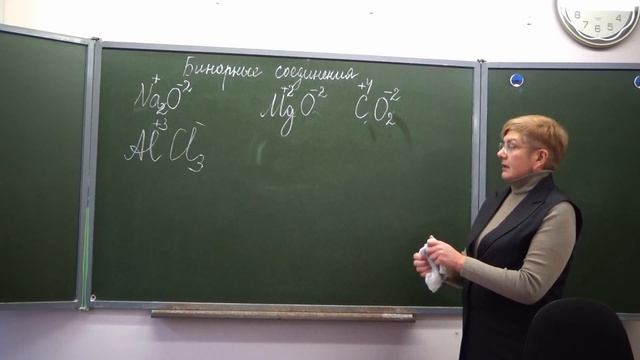 Бинарные соединения
Na₂⁺O⁻² Mg⁺²O⁻² C⁺⁴O₂⁻²
Al⁺³Cl₃⁻
8 7 6 5 4